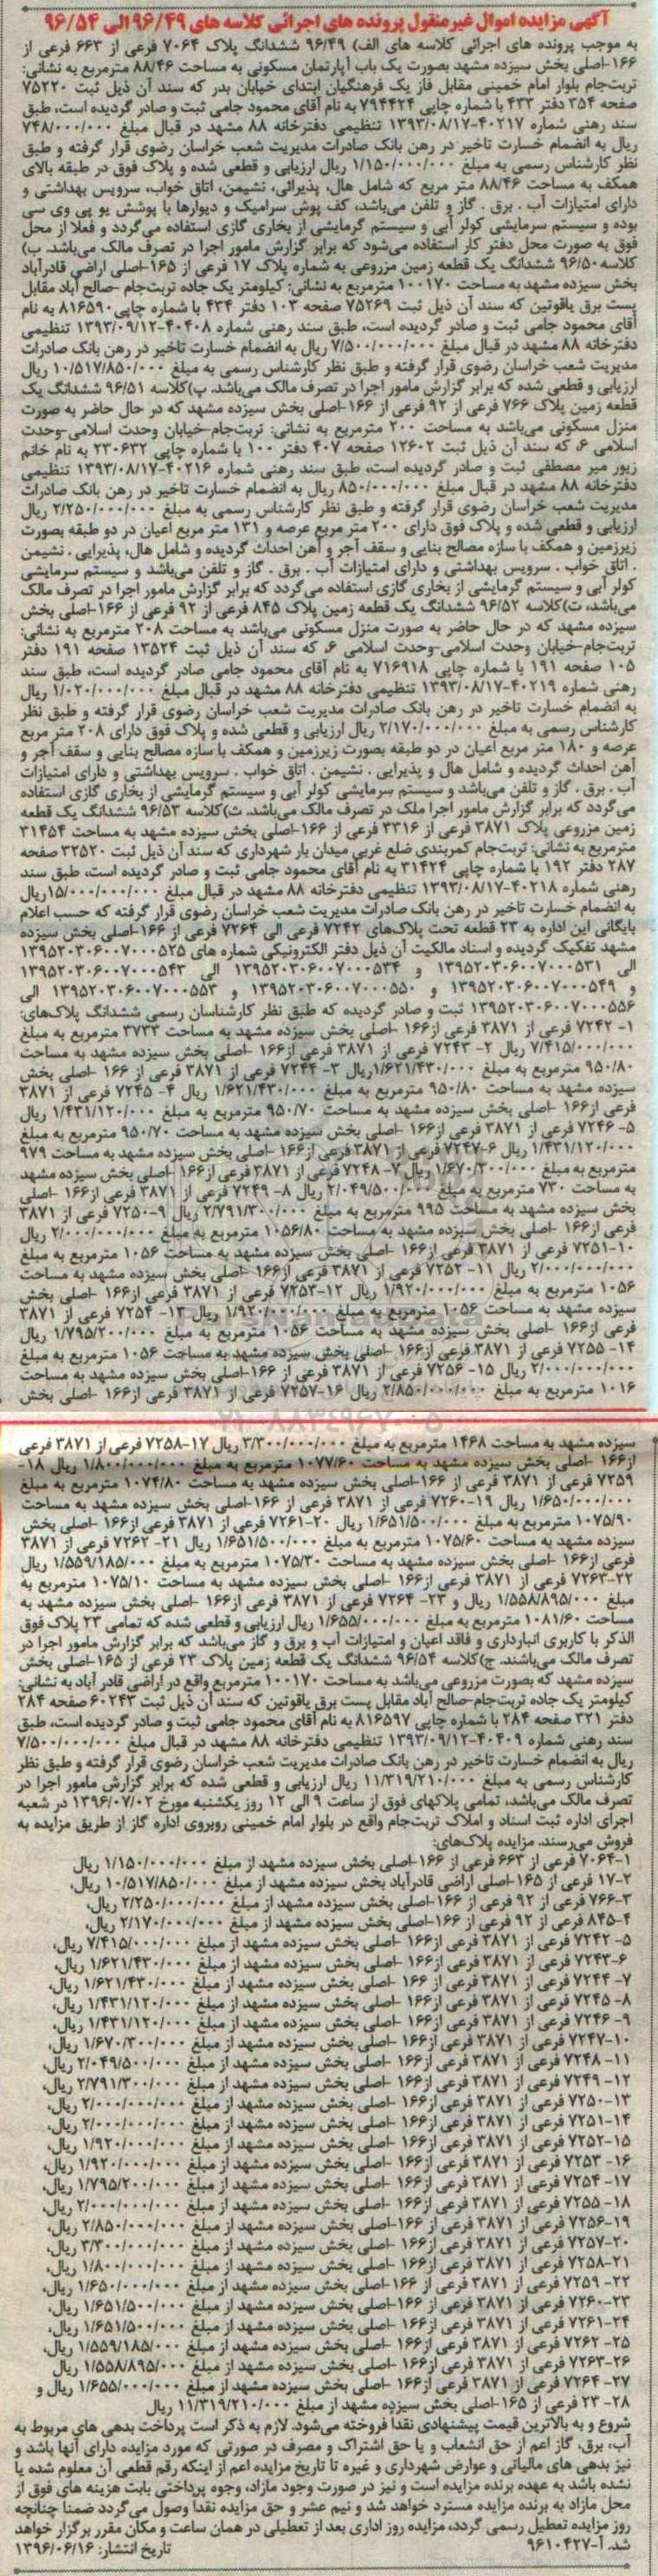 آگهی مزایده اموال غیرمنقول پرونده های اجرائی کلاسه های ۹۶/۴۹ الی ۹۶/۵۴
به موجب پرونده های اجرائی کلاسه های الف) ۹۶/۴۹ ششدانگ پلاک ۷۰۶۴ فرعی از ۶۶۳ فرعی از
۱۶۶-اصلی بخش سیزده مشهد بصورت یک باب آپارتمان مسکونی به مساحت ۸۸/۴۶ مترمربع به نشانی:
تربت‌جام بلوار امام خمینی مقابل فاز یک فرهنگیان ابتدای خیابان بدر که سند آن ذیل ثبت ۷۵۲۲۰
صفحه ۳۵۴ دفتر ۴۳۳ با شماره چاپی ۷۹۴۴۲۴ به نام آقای محمود جامی ثبت و صادر گردیده است، طبق
سند رهنی شماره ۴۰۲۱۷-۱۳۹۳/۰۸/۱۷ تنظیمی دفترخانه ۸۸ مشهد در قبال مبلغ ۷۴۸/۰۰۰/۰۰۰
ریال به انضمام خسارت تاخیر در رهن بانک صادرات مدیریت شعب خراسان رضوی قرار گرفته و طبق
نظر کارشناس رسمی به مبلغ ۱/۱۵۰/۰۰۰/۰۰۰ ریال ارزیابی و قطعی شده و پلاک فوق در طبقه بالای
همکف به مساحت ۸۸/۴۶ متر مربع که شامل هال، پذیرائی، نشیمن، اتاق خواب، سرویس بهداشتی و
دارای امتیازات آب . برق . گاز و تلفن می‌باشد، کف پوش سرامیک و دیوارها با پوشش یو پی وی سی
بوده و سیستم سرمایشی کولر آبی و سیستم گرمایشی از بخاری گازی استفاده می‌گردد و فعلا از محل
فوق به صورت محل دفتر کار استفاده می‌شود که برابر گزارش مامور اجرا در تصرف مالک می‌باشد. ب)
کلاسه ۹۶/۵۰ ششدانگ یک قطعه زمین مزروعی به شماره پلاک ۱۷ فرعی از ۱۶۵-اصلی اراضی قادرآباد
بخش سیزده مشهد به مساحت ۱۰۰۱۷۰ مترمربع به نشانی: کیلومتر یک جاده تربت‌جام -صالح آباد مقابل
پست برق یاقوتین که سند آن ذیل ثبت ۷۵۲۶۹ صفحه ۱۰۳ دفتر ۴۳۴ با شماره چاپی ۸۱۶۵۹۰ به نام
آقای محمود جامی ثبت و صادر گردیده است، طبق سند رهنی شماره ۴۰۴۰۸-۱۳۹۳/۰۹/۱۲ تنظیمی
دفترخانه ۸۸ مشهد در قبال مبلغ ۷/۵۰۰/۰۰۰/۰۰۰ ریال به انضمام خسارت تاخیر در رهن بانک صادرات
مدیریت شعب خراسان رضوی قرار گرفته و طبق نظر کارشناس رسمی به مبلغ ۱۰/۵۱۷/۸۵۰/۰۰۰ ریال
ارزیابی و قطعی شده که برابر گزارش مامور اجرا در تصرف مالک می‌باشد. پ)کلاسه ۹۶/۵۱ ششدانگ یک
قطعه زمین پلاک ۷۶۶ فرعی از ۹۲ فرعی از ۱۶۶-اصلی بخش سیزده مشهد که در حال حاضر به صورت
منزل مسکونی می‌باشد به مساحت ۲۰۰ مترمربع به نشانی: تربت‌جام-خیابان وحدت اسلامی-وحدت
اسلامی ۶، که سند آن ذیل ثبت ۱۲۶۰۲ صفحه ۴۰۷ دفتر ۱۰۰ با شماره چاپی ۲۳۰۶۳۲ به نام خانم
زیور میر مصطفی ثبت و صادر گردیده است، طبق سند رهنی شماره ۴۰۲۱۶-۱۳۹۳/۰۸/۱۷ تنظیمی
دفترخانه ۸۸ مشهد در قبال مبلغ ۸۵۰/۰۰۰/۰۰۰ ریال به انضمام خسارت تاخیر در رهن بانک صادرات
مدیریت شعب خراسان رضوی قرار گرفته و طبق نظر کارشناس رسمی به مبلغ ۲/۲۵۰/۰۰۰/۰۰۰ ریال
ارزیابی و قطعی شده و پلاک فوق دارای ۲۰۰ متر مربع عرصه و ۱۳۱ متر مربع اعیان در دو طبقه بصورت
زیرزمین و همکف با سازه مصالح بنایی و سقف آجر و آهن احداث گردیده و شامل هال، پذیرایی . نشیمن
. اتاق خواب . سرویس بهداشتی و دارای امتیازات آب . برق . گاز و تلفن می‌باشد و سیستم سرمایشی
کولر آبی و سیستم گرمایشی از بخاری گازی استفاده می‌گردد که برابر گزارش مامور اجرا در تصرف مالک
می‌باشد، ت)کلاسه ۹۶/۵۲ ششدانگ یک قطعه زمین پلاک ۸۴۵ فرعی از ۹۲ فرعی از ۱۶۶-اصلی بخش
سیزده مشهد که در حال حاضر به صورت منزل مسکونی می‌باشد به مساحت ۲۰۸ مترمربع به نشانی:
تربت‌جام-خیابان وحدت اسلامی-وحدت اسلامی ۶، که سند آن ذیل ثبت ۱۳۵۲۴ صفحه ۱۹۱ دفتر
۱۰۵ صفحه ۱۹۱ با شماره چاپی ۷۱۶۹۱۸ به نام آقای محمود جامی صادر گردیده است، طبق سند
رهنی شماره ۴۰۲۱۹-۱۳۹۳/۰۸/۱۷ تنظیمی دفترخانه ۸۸ مشهد در قبال مبلغ ۱/۰۲۰/۰۰۰/۰۰۰ ریال
به انضمام خسارت تاخیر در رهن بانک صادرات مدیریت شعب خراسان رضوی قرار گرفته و طبق نظر
کارشناس رسمی به مبلغ ۲/۱۷۰/۰۰۰/۰۰۰ ریال ارزیابی و قطعی شده و پلاک فوق دارای ۲۰۸ متر مربع
عرصه و ۱۸۰ متر مربع اعیان در دو طبقه بصورت زیرزمین و همکف با سازه مصالح بنایی و سقف آجر و
آهن احداث گردیده و شامل هال و پذیرایی . نشیمن . اتاق خواب . سرویس بهداشتی و دارای امتیازات
آب . برق . گاز و تلفن می‌باشد و سیستم سرمایشی کولر آبی و سیستم گرمایشی از بخاری گازی استفاده
می‌گردد که برابر گزارش مامور اجرا ملک در تصرف مالک می‌باشد. ث)کلاسه ۹۶/۵۳ ششدانگ یک قطعه
زمین مزروعی پلاک ۳۸۷۱ فرعی از ۳۳۱۶ فرعی از ۱۶۶-اصلی بخش سیزده مشهد به مساحت ۳۱۴۵۴
مترمربع به نشانی: تربت‌جام کمربندی ضلع غربی میدان بار شهرداری که سند آن ذیل ثبت ۳۲۵۲۰ صفحه
۲۸۷ دفتر ۱۹۲ با شماره چاپی ۳۱۴۲۴ به نام آقای محمود جامی ثبت و صادر گردیده است، طبق سند
رهنی شماره ۴۰۲۱۸-۱۳۹۳/۰۸/۱۷ تنظیمی دفترخانه ۸۸ مشهد در قبال مبلغ ۱۵/۰۰۰/۰۰۰/۰۰۰ ریال
به انضمام خسارت تاخیر در رهن بانک صادرات مدیریت شعب خراسان رضوی قرار گرفته که حسب اعلام
بایگانی این اداره به ۲۳ قطعه تحت پلاک‌های ۷۲۴۲ فرعی الی ۷۲۶۴ فرعی از ۱۶۶-اصلی بخش سیزده
مشهد تفکیک گردیده و اسناد مالکیت آن ذیل دفتر الکترونیکی شماره های ۱۳۹۵۲۰۳۰۶۰۰۷۰۰۰۵۲۵
الی ۱۳۹۵۲۰۳۰۶۰۰۷۰۰۰۵۳۱ و ۱۳۹۵۲۰۳۰۶۰۰۷۰۰۰۵۳۴ الی ۱۳۹۵۲۰۳۰۶۰۰۷۰۰۰۵۴۳
و ۱۳۹۵۲۰۳۰۶۰۰۷۰۰۰۵۴۹ و ۱۳۹۵۲۰۳۰۶۰۰۷۰۰۰۵۵۰ و ۱۳۹۵۲۰۳۰۶۰۰۷۰۰۰۵۵۳ الی
۱۳۹۵۲۰۳۰۶۰۰۷۰۰۰۵۵۶ ثبت و صادر گردیده که طبق نظر کارشناسان رسمی ششدانگ پلاک‌های:
۱- ۷۲۴۲ فرعی از ۳۸۷۱ فرعی از۱۶۶ -اصلی بخش سیزده مشهد به مساحت ۳۷۳۳ مترمربع به مبلغ
۷/۴۱۵/۰۰۰/۰۰۰ ریال ۲- ۷۲۴۳ فرعی از ۳۸۷۱ فرعی از۱۶۶ -اصلی بخش سیزده مشهد به مساحت
۹۵۰/۸۰ مترمربع به مبلغ ۱/۶۲۱/۴۳۰/۰۰۰ریال ۳- ۷۲۴۴ فرعی از ۳۸۷۱ فرعی از ۱۶۶ -اصلی بخش
سیزده مشهد به مساحت ۹۵۰/۸۰ مترمربع به مبلغ ۱/۶۲۱/۴۳۰/۰۰۰ ریال ۴- ۷۲۴۵ فرعی از ۳۸۷۱
فرعی از۱۶۶ -اصلی بخش سیزده مشهد به مساحت ۹۵۰/۷۰ مترمربع به مبلغ ۱/۴۳۱/۱۲۰/۰۰۰ ریال
۵- ۷۲۴۶ فرعی از ۳۸۷۱ فرعی از۱۶۶ -اصلی بخش سیزده مشهد به مساحت ۹۵۰/۷۰ مترمربع به مبلغ
۱/۴۳۱/۱۲۰/۰۰۰ ریال ۶-۷۲۴۷ فرعی از ۳۸۷۱ فرعی از۱۶۶ -اصلی بخش سیزده مشهد به مساحت ۹۷۹
مترمربع به مبلغ ۱/۶۷۰/۳۰۰/۰۰۰ ریال ۷- ۷۲۴۸ فرعی از ۳۸۷۱ فرعی از۱۶۶ -اصلی بخش سیزده مشهد
به مساحت ۷۳۰ مترمربع به مبلغ ۲/۰۴۹/۵۰۰/۰۰۰ ریال ۸- ۷۲۴۹ فرعی از ۳۸۷۱ فرعی از۱۶۶ -اصلی
بخش سیزده مشهد به مساحت ۹۹۵ مترمربع به مبلغ ۲/۷۹۱/۳۰۰/۰۰۰ ریال ۹-۷۲۵۰ فرعی از ۳۸۷۱
فرعی از۱۶۶ -اصلی بخش سیزده مشهد به مساحت ۱۰۵۶/۸۰ مترمربع به مبلغ ۲/۰۰۰/۰۰۰/۰۰۰ ریال
۱۰-۷۲۵۱ فرعی از ۳۸۷۱ فرعی از۱۶۶ -اصلی بخش سیزده مشهد به مساحت ۱۰۵۶ مترمربع به مبلغ
۲/۰۰۰/۰۰۰/۰۰۰ ریال ۱۱- ۷۲۵۲ فرعی از ۳۸۷۱ فرعی از۱۶۶ -اصلی بخش سیزده مشهد به مساحت
۱۰۵۶ مترمربع به مبلغ ۱/۹۲۰/۰۰۰/۰۰۰ ریال ۱۲-۷۲۵۳ فرعی از ۳۸۷۱ فرعی از۱۶۶ -اصلی بخش
سیزده مشهد به مساحت ۱۰۵۶ مترمربع به مبلغ ۱/۹۲۰/۰۰۰/۰۰۰ ریال ۱۳- ۷۲۵۴ فرعی از ۳۸۷۱
فرعی از۱۶۶ -اصلی بخش سیزده مشهد به مساحت ۱۰۵۶ مترمربع به مبلغ ۱/۷۹۵/۲۰۰/۰۰۰ ریال
۱۴- ۷۲۵۵ فرعی از ۳۸۷۱ فرعی از۱۶۶ -اصلی بخش سیزده مشهد به مساحت ۱۰۵۶ مترمربع به مبلغ
۲/۰۰۰/۰۰۰/۰۰۰ ریال ۱۵- ۷۲۵۶ فرعی از ۳۸۷۱ فرعی از ۱۶۶-اصلی بخش سیزده مشهد به مساحت
۱۰۱۶ مترمربع به مبلغ ۲/۸۵۰/۰۰۰/۰۰۰ ریال ۱۶-۷۲۵۷ فرعی از ۳۸۷۱ فرعی از۱۶۶ -اصلی بخش
سیزده مشهد به مساحت ۱۴۶۸ مترمربع به مبلغ ۳/۳۰۰/۰۰۰/۰۰۰ ریال ۱۷-۷۲۵۸ فرعی از ۳۸۷۱ فرعی
از۱۶۶ -اصلی بخش سیزده مشهد به مساحت ۱۰۷۷/۶۰ مترمربع به مبلغ ۱/۸۰۰/۰۰۰/۰۰۰ ریال ۱۸-
۷۲۵۹ فرعی از ۳۸۷۱ فرعی از ۱۶۶-اصلی بخش سیزده مشهد به مساحت ۱۰۷۴/۸۰ مترمربع به مبلغ
۱/۶۵۰/۰۰۰/۰۰۰ ریال ۱۹-۷۲۶۰ فرعی از ۳۸۷۱ فرعی از ۱۶۶-اصلی بخش سیزده مشهد به مساحت
۱۰۷۵/۹۰ مترمربع به مبلغ ۱/۶۵۱/۵۰۰/۰۰۰ ریال ۲۰-۷۲۶۱ فرعی از ۳۸۷۱ فرعی از۱۶۶ -اصلی بخش
سیزده مشهد به مساحت ۱۰۷۵/۶۰ مترمربع به مبلغ ۱/۶۵۱/۵۰۰/۰۰۰ ریال ۲۱- ۷۲۶۲ فرعی از ۳۸۷۱
فرعی از۱۶۶ -اصلی بخش سیزده مشهد به مساحت ۱۰۷۵/۳۰ مترمربع به مبلغ ۱/۵۵۹/۱۸۵/۰۰۰ ریال
۲۲-۷۲۶۳ فرعی از ۳۸۷۱ فرعی از۱۶۶ -اصلی بخش سیزده مشهد به مساحت ۱۰۷۵/۱۰ مترمربع به
مبلغ ۱/۵۵۸/۸۹۵/۰۰۰ ریال و ۲۳- ۷۲۶۴ فرعی از ۳۸۷۱ فرعی از۱۶۶ -اصلی بخش سیزده مشهد به
مساحت ۱۰۸۱/۶۰ مترمربع به مبلغ ۱/۶۵۵/۰۰۰/۰۰۰ ریال ارزیابی و قطعی شده که تمامی ۲۳ پلاک فوق
الذکر با کاربری انبارداری و فاقد اعیان و امتیازات آب و برق و گاز می‌باشد که برابر گزارش مامور اجرا در
تصرف مالک می‌باشند. ج)کلاسه ۹۶/۵۴ ششدانگ یک قطعه زمین پلاک ۲۳ فرعی از ۱۶۵-اصلی بخش
سیزده مشهد که بصورت مزروعی می‌باشد به مساحت ۱۰۰۱۷۰ مترمربع واقع در اراضی قادر آباد به نشانی:
کیلومتر یک جاده تربت‌جام-صالح آباد مقابل پست برق یاقوتین که سند آن ذیل ثبت ۶۰۲۴۳ صفحه ۲۸۴
دفتر ۳۲۱ صفحه ۲۸۴ با شماره چاپی ۸۱۶۵۹۷ به نام آقای محمود جامی ثبت و صادر گردیده است، طبق
سند رهنی شماره ۴۰۴۰۹-۱۳۹۳/۰۹/۱۲ تنظیمی دفترخانه ۸۸ مشهد در قبال مبلغ ۷/۵۰۰/۰۰۰/۰۰۰
ریال به انضمام خسارت تاخیر در رهن بانک صادرات مدیریت شعب خراسان رضوی قرار گرفته و طبق نظر
کارشناس رسمی به مبلغ ۱۱/۳۱۹/۲۱۰/۰۰۰ ریال ارزیابی و قطعی شده که برابر گزارش مامور اجرا در
تصرف مالک می‌باشد، تمامی پلاکهای فوق از ساعت ۹ الی ۱۲ روز یکشنبه مورخ ۱۳۹۶/۰۷/۰۲ در شعبه
اجرای اداره ثبت اسناد و املاک تربت‌جام واقع در بلوار امام خمینی روبروی اداره گاز از طریق مزایده به
فروش می‌رسند. مزایده پلاک‌های:
۱-۷۰۶۴ فرعی از ۶۶۳ فرعی از ۱۶۶-اصلی بخش سیزده مشهد از مبلغ ۱/۱۵۰/۰۰۰/۰۰۰ ریال
۲-۱۷ فرعی از ۱۶۵-اصلی اراضی قادرآباد بخش سیزده مشهد از مبلغ ۱۰/۵۱۷/۸۵۰/۰۰۰ ریال،
۳-۷۶۶ فرعی از ۹۲ فرعی از ۱۶۶-اصلی بخش سیزده مشهد از مبلغ ۲/۲۵۰/۰۰۰/۰۰۰ ریال،
۴-۸۴۵ فرعی از ۹۲ فرعی از ۱۶۶-اصلی بخش سیزده مشهد از مبلغ ۲/۱۷۰/۰۰۰/۰۰۰ ریال،
۵- ۷۲۴۲ فرعی از ۳۸۷۱ فرعی از۱۶۶ -اصلی بخش سیزده مشهد از مبلغ ۷/۴۱۵/۰۰۰/۰۰۰ ریال،
۶-۷۲۴۳ فرعی از ۳۸۷۱ فرعی از۱۶۶ -اصلی بخش سیزده مشهد از مبلغ ۱/۶۲۱/۴۳۰/۰۰۰ ریال،
۷- ۷۲۴۴ فرعی از ۳۸۷۱ فرعی از ۱۶۶ -اصلی بخش سیزده مشهد از مبلغ ۱/۶۲۱/۴۳۰/۰۰۰ ریال،
۸- ۷۲۴۵ فرعی از ۳۸۷۱ فرعی از۱۶۶ -اصلی بخش سیزده مشهد از مبلغ ۱/۴۳۱/۱۲۰/۰۰۰ ریال،
۹- ۷۲۴۶ فرعی از ۳۸۷۱ فرعی از۱۶۶ -اصلی بخش سیزده مشهد از مبلغ ۱/۴۳۱/۱۲۰/۰۰۰ ریال،
۱۰-۷۲۴۷ فرعی از ۳۸۷۱ فرعی از۱۶۶ -اصلی بخش سیزده مشهد از مبلغ ۱/۶۷۰/۳۰۰/۰۰۰ ریال،
۱۱- ۷۲۴۸ فرعی از ۳۸۷۱ فرعی از۱۶۶ -اصلی بخش سیزده مشهد از مبلغ ۲/۰۴۹/۵۰۰/۰۰۰ ریال،
۱۲- ۷۲۴۹ فرعی از ۳۸۷۱ فرعی از۱۶۶ -اصلی بخش سیزده مشهد از مبلغ ۲/۷۹۱/۳۰۰/۰۰۰ ریال،
۱۳-۷۲۵۰ فرعی از ۳۸۷۱ فرعی از۱۶۶ -اصلی بخش سیزده مشهد از مبلغ ۲/۰۰۰/۰۰۰/۰۰۰ ریال،
۱۴-۷۲۵۱ فرعی از ۳۸۷۱ فرعی از۱۶۶ -اصلی بخش سیزده مشهد از مبلغ ۲/۰۰۰/۰۰۰/۰۰۰ ریال،
۱۵-۷۲۵۲ فرعی از ۳۸۷۱ فرعی از۱۶۶ -اصلی بخش سیزده مشهد از مبلغ ۱/۹۲۰/۰۰۰/۰۰۰ ریال،
۱۶- ۷۲۵۳ فرعی از ۳۸۷۱ فرعی از۱۶۶ -اصلی بخش سیزده مشهد از مبلغ ۱/۹۲۰/۰۰۰/۰۰۰ ریال،
۱۷- ۷۲۵۴ فرعی از ۳۸۷۱ فرعی از۱۶۶ -اصلی بخش سیزده مشهد از مبلغ ۱/۷۹۵/۲۰۰/۰۰۰ ریال،
۱۸- ۷۲۵۵ فرعی از ۳۸۷۱ فرعی از۱۶۶ -اصلی بخش سیزده مشهد از مبلغ ۲/۰۰۰/۰۰۰/۰۰۰ ریال،
۱۹-۷۲۵۶ فرعی از ۳۸۷۱ فرعی از ۱۶۶-اصلی بخش سیزده مشهد از مبلغ ۲/۸۵۰/۰۰۰/۰۰۰ ریال،
۲۰-۷۲۵۷ فرعی از ۳۸۷۱ فرعی از۱۶۶ -اصلی بخش سیزده مشهد از مبلغ ۳/۳۰۰/۰۰۰/۰۰۰ ریال،
۲۱-۷۲۵۸ فرعی از ۳۸۷۱ فرعی از۱۶۶ -اصلی بخش سیزده مشهد از مبلغ ۱/۸۰۰/۰۰۰/۰۰۰ ریال،
۲۲- ۷۲۵۹ فرعی از ۳۸۷۱ فرعی از ۱۶۶-اصلی بخش سیزده مشهد از مبلغ ۱/۶۵۰/۰۰۰/۰۰۰ ریال،
۲۳-۷۲۶۰ فرعی از ۳۸۷۱ فرعی از۱۶۶ -اصلی بخش سیزده مشهد از مبلغ ۱/۶۵۱/۵۰۰/۰۰۰ ریال،
۲۴-۷۲۶۱ فرعی از ۳۸۷۱ فرعی از۱۶۶ -اصلی بخش سیزده مشهد از مبلغ ۱/۶۵۱/۵۰۰/۰۰۰ ریال،
۲۵- ۷۲۶۲ فرعی از ۳۸۷۱ فرعی از۱۶۶ -اصلی بخش سیزده مشهد از مبلغ ۱/۵۵۹/۱۸۵/۰۰۰ ریال،
۲۶-۷۲۶۳ فرعی از ۳۸۷۱ فرعی از۱۶۶ -اصلی بخش سیزده مشهد از مبلغ ۱/۵۵۸/۸۹۵/۰۰۰ ریال
۲۷- ۷۲۶۴ فرعی از ۳۸۷۱ فرعی از۱۶۶ -اصلی بخش سیزده مشهد از مبلغ ۱/۶۵۵/۰۰۰/۰۰۰ ریال و
۲۸- ۲۳ فرعی از ۱۶۵-اصلی بخش سیزده مشهد از مبلغ ۱۱/۳۱۹/۲۱۰/۰۰۰ ریال
شروع و به بالاترین قیمت پیشنهادی نقدا فروخته می‌شود. لازم به ذکر است پرداخت بدهی های مربوط به
آب، برق، گاز اعم از حق انشعاب و یا حق اشتراک و مصرف در صورتی که مورد مزایده دارای آنها باشد و
نیز بدهی های مالیاتی و عوارض شهرداری و غیره تا تاریخ مزایده اعم از اینکه رقم قطعی آن معلوم شده یا
نشده باشد به عهده برنده مزایده است و نیز در صورت وجود مازاد، وجوه پرداختی بابت هزینه های فوق از
محل مازاد به برنده مزایده مسترد خواهد شد و نیم عشر و حق مزایده نقدا وصول می‌گردد ضمنا چنانچه
روز مزایده تعطیل رسمی گردد، مزایده روز اداری بعد از تعطیلی در همان ساعت و مکان مقرر برگزار خواهد
شد. آ-۹۶۱۰۴۲۷
تاریخ انتشار: ۱۳۹۶/۰۶/۱۶